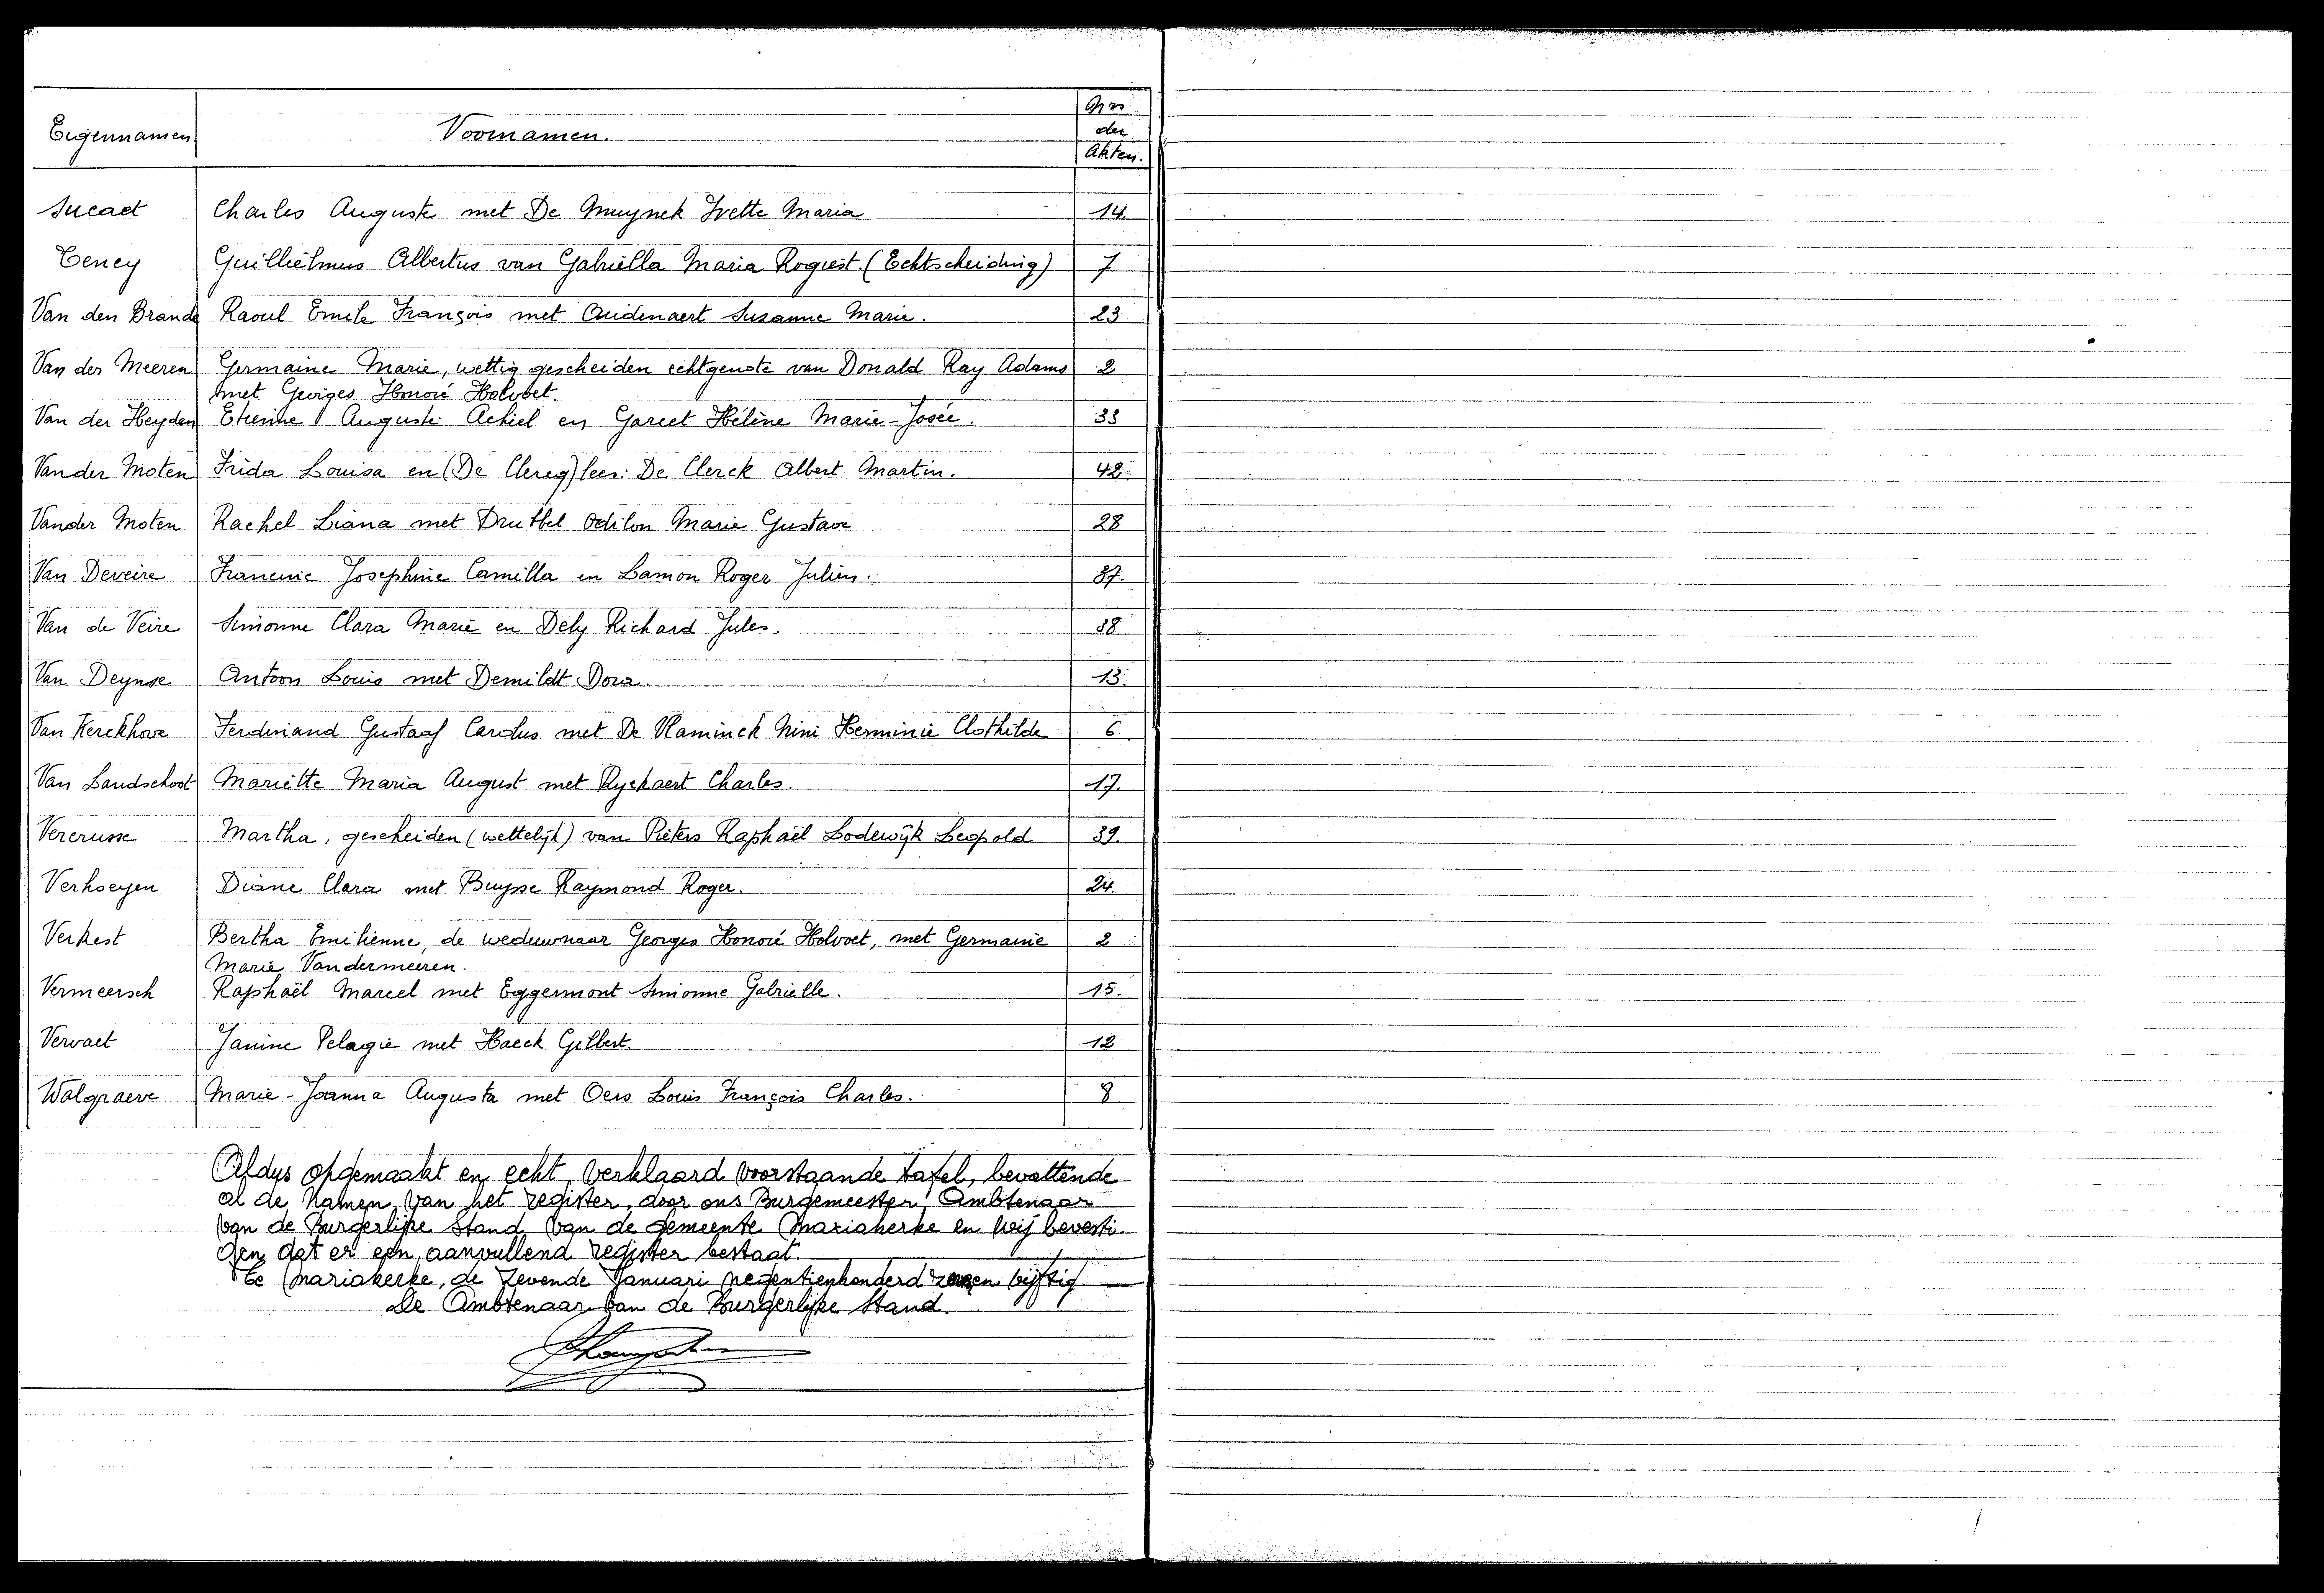 Eigennamen Voornamen. Nrs der Akten.
Sucaet Charles Auguste met De Muynck Yvette Maria 14.
Teney Guilliélmus Albertus van Gabriëlla Maria Rogiest. (Echtscheiding) 7
Van den Brande Raoul Emile François met Audenaert Suzanne Marie. 23
Van der Meeren Germaine Marie, wettig gescheiden echtgenote van Donald Ray Adams 2
met Georges Honoré Holvoet.
Van der Heyden Etienne Auguste Achiel en Hélène Marie-Josée. 33
Van der Moten Frida Louisa en (De Clercq) lees: De Clerck Albert Martin. 42.
Vander Moten Rachel Liana met Drubbel Odilon Marie Gustave 28
Van Deveire Francine Josephine Camilla en Lamon Roger Julien. 37.
Van de Veire Simonne Clara Marie en Dely Richard Jules. 38
Van Deynse Antoon Louis met Demildt Dora. 13.
Van Kerckhove Ferdinand Gustaaf Carolus met De Vlaminck Nini Herminie Clothilde 6
Van Landschoot Mariëtte Maria August met Ryckaert Charles. 17.
Vercrusse Martha, gescheiden (wettelijk) van Pieters Raphaël Lodewijk Leopold 39.
Verhoeyen Diane Clara met Buysse Raymond Roger. 24.
Verkest Bertha Emilienne, de weduwnaar Georges Honoré Holvoet, met Germanie 2
Marie Vandermeeren.
Vermeersch Raphaël Marcel met Eggermont Simonne Gabriëlle. 15.
Vervaet Janine Pelagie met Haeck Gilbert. 12
Walgraeve Marie-Joanna Augusta met Oers Louis François Charles. 8
Aldus opgemaakt en echt verklaard voorstaande tafel, bevattende
al de namen van het register, door ons Burgemeester, Ambtenaar
van de Burgerlijke Stand van de gemeente Mariakerke en wij bevesti-
gen dat er een aanvullend register bestaat.
Te Mariakerke, de zevende Januari negentienhonderd vijftig.
De Ambtenaar van de Burgerlijke Stand.